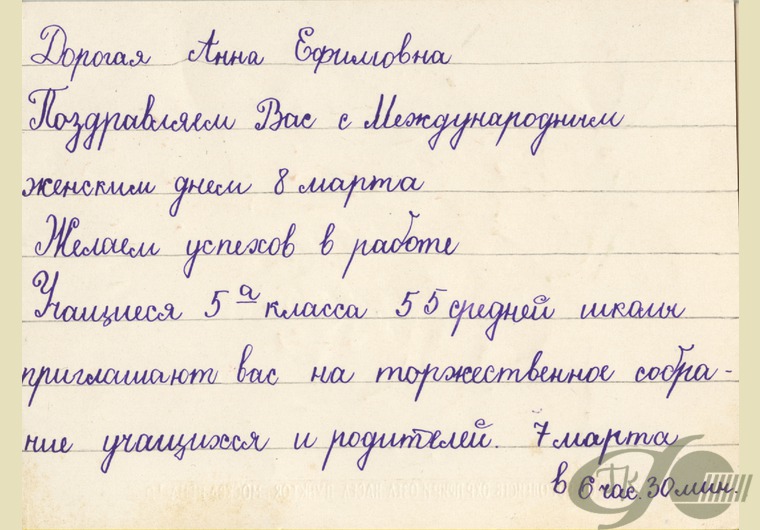 Дорогая Анна Ефимовна
Поздравляем Вас с Международным
женским днем 8 марта
Желаем успехов в работе
Учащиеся 5а класса 55 средней школы
приглашают вас на торжественное собра-
ние учащихся и родителей. 7 марта
в 6 час. 30 мин.